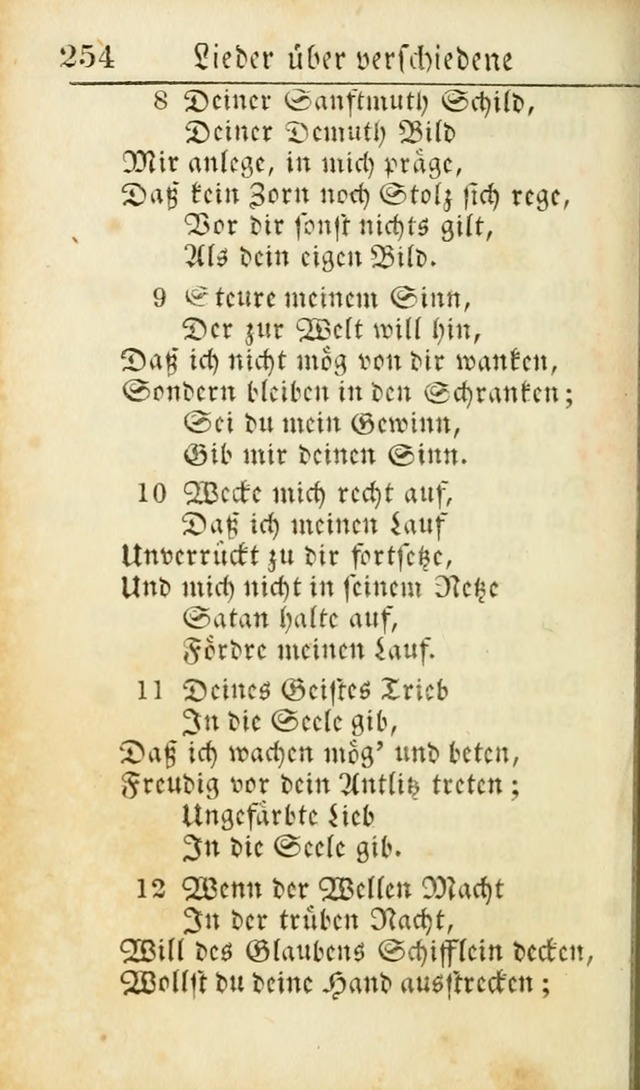 254 Lieder über verschiedene
8 Deiner Sanftmuth Schild,
Deiner Demuth Bild
Mir anlege, in mich präge,
Daß kein Zorn noch Stolz sich rege,
Vor dir sonst nichts gilt,
Als dein eigen Bild.
9 Steure meinem Sinn,
Der zur Welt will hin,
Daß ich nicht mög von dir wanken,
Sondern bleiben in den Schranken;
Sei du mein Gewinn,
Gib mir deinen Sinn.
10 Wecke mich recht auf,
Daß ich meinen Lauf
Unverrückt zu dir fortsetze,
Und mich nicht in seinem Netze
Satan halte auf,
Fördre meinen Lauf.
11 Deines Geistes Trieb
In die Seele gib,
Daß ich wachen mög' und beten,
Freudig vor dein Antlitz treten;
Ungefärbte Lieb
In die Seele gib.
12 Wenn der Wellen Macht
In der trüben Nacht,
Will des Glaubens Schifflein decken,
Wollst du deine Hand ausstrecken;